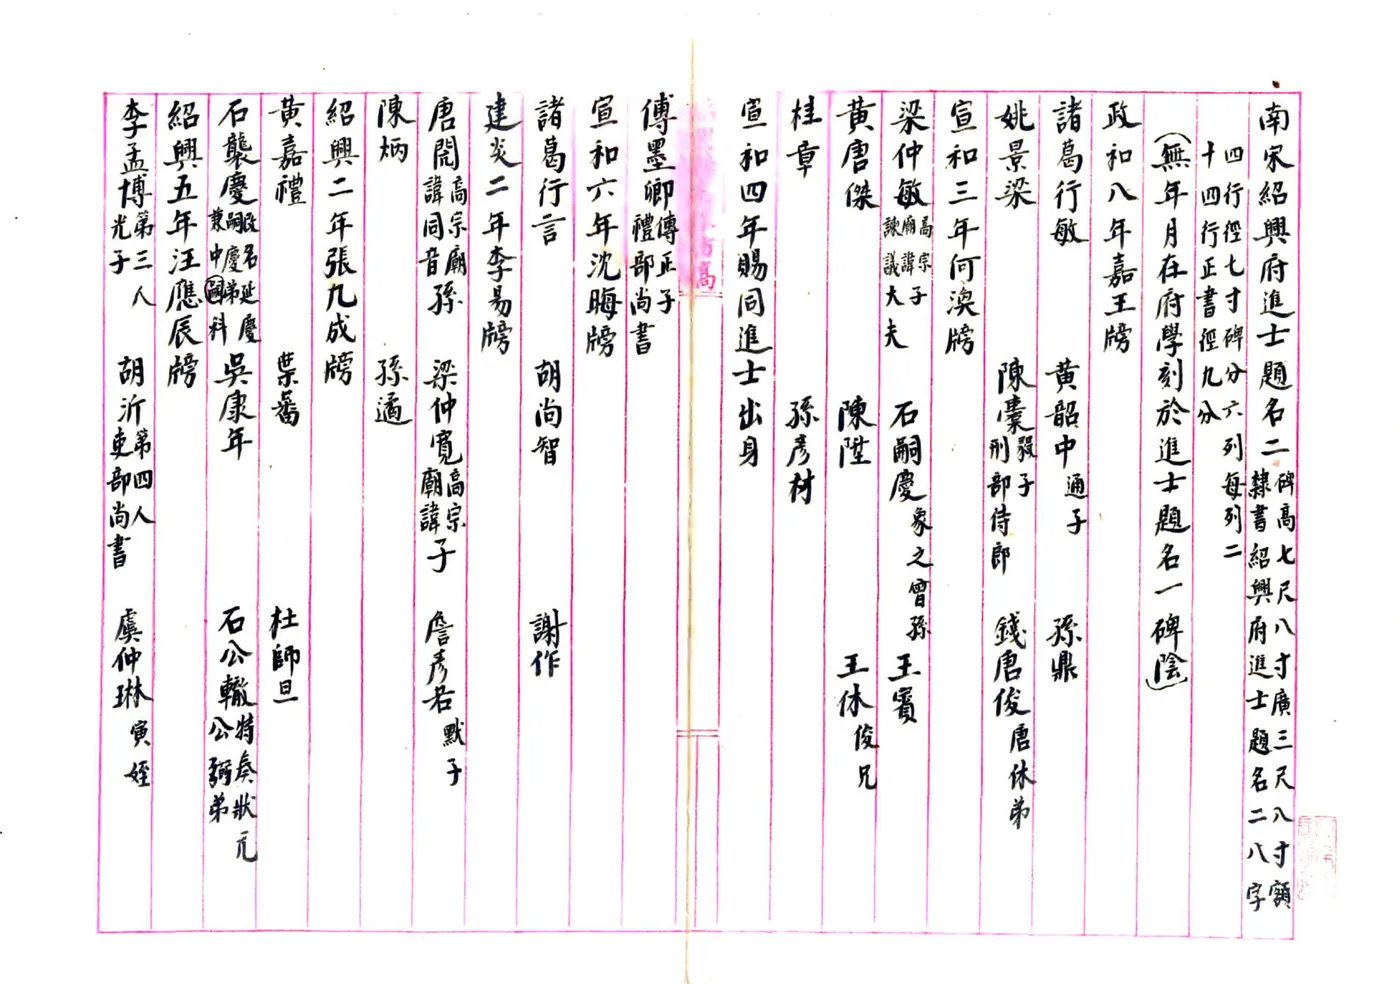 南宋紹興府進士題名二 碑高七尺八寸廣三尺八寸額隸書紹興府進士題名二八字
四行徑七寸碑分六列每列二十四行正書徑九分
（無年月在府學刻於進士題名一碑陰）
政和八年嘉王牓
諸葛行敏 黃韶中通子 孫鼎
姚景梁 陳橐毅子刑部侍郎 錢唐俊唐休弟
宣和三年何渙牓
梁仲敏高宗廟諱子諫議大夫 石嗣慶象之曾孫 王賓
黃唐傑 陳陞 王休俊兄
桂章 孫彥材
宣和四年賜同進士出身
傅墨卿傳正子禮部尚書
宣和六年沈晦牓
諸葛行言 胡尚智 謝作
建炎二年李易牓
唐閱高宗廟諱同音孫 梁仲寬高宗廟諱子 詹彥若默子
陳炳 孫遹
紹興二年張九成牓
黃嘉禮 葉蕃 杜師旦
石襲慶改名延慶嗣慶弟兼中國科 吳康年 石公轍特奏狀元公弼弟
紹興五年汪應辰牓
李孟博第三人光子 胡沂第四人吏部尚書 虞仲琳寅姪